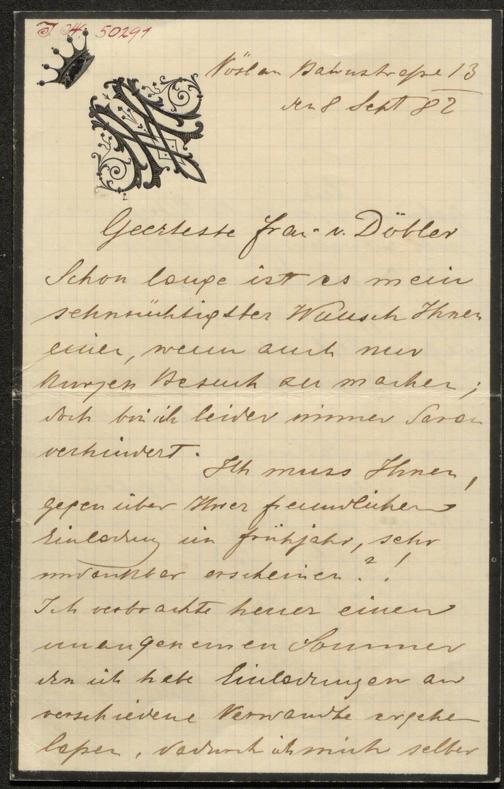 J. N. 50291
Vöslau Bahnstraße 13
den 8 Sept 82
Geerteste Frau v. Döbler
Schon lange ist es mein
sehnsüchtigster Wunsch Ihnen
einen, wenn auch nur
kurzen Besuch zu machen;
doch bin ich leider immer daran
verhindert.
Ich muss Ihnen,
gegenüber Ihrer freundlichen
Einladung im Frühjahr, sehr
undankbar erscheinen?!
Ich verbrachte heuer einen
unangenemen Sommer
den ich habe Einladungen an
verschiedene Verwandte ergehen
laßen, dadurch ich mich selber